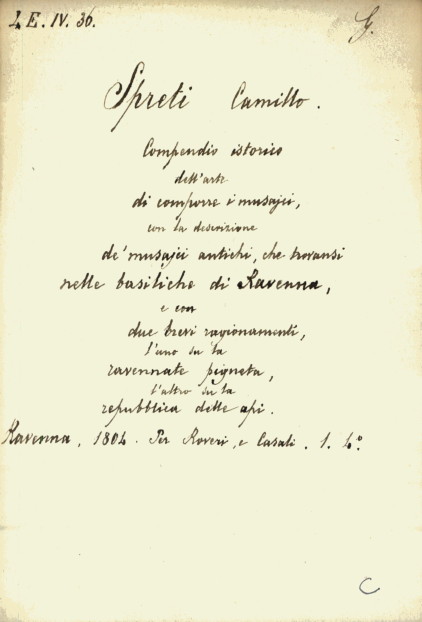 2 E. IV. 36.
G.
Spreti Camillo.
Compendio istorico
dell'arte
di comporre i musajci,
con la descrizione
de' musajci antichi, che trovansi
nelle basiliche di Ravenna,
e con
due brevi ragionamenti,
l'uno su la
ravennate pigneta,
l'altro su la
repubblica delle api.
Ravenna, 1804. Per Roveri, e Casali. 1. 4º.
C